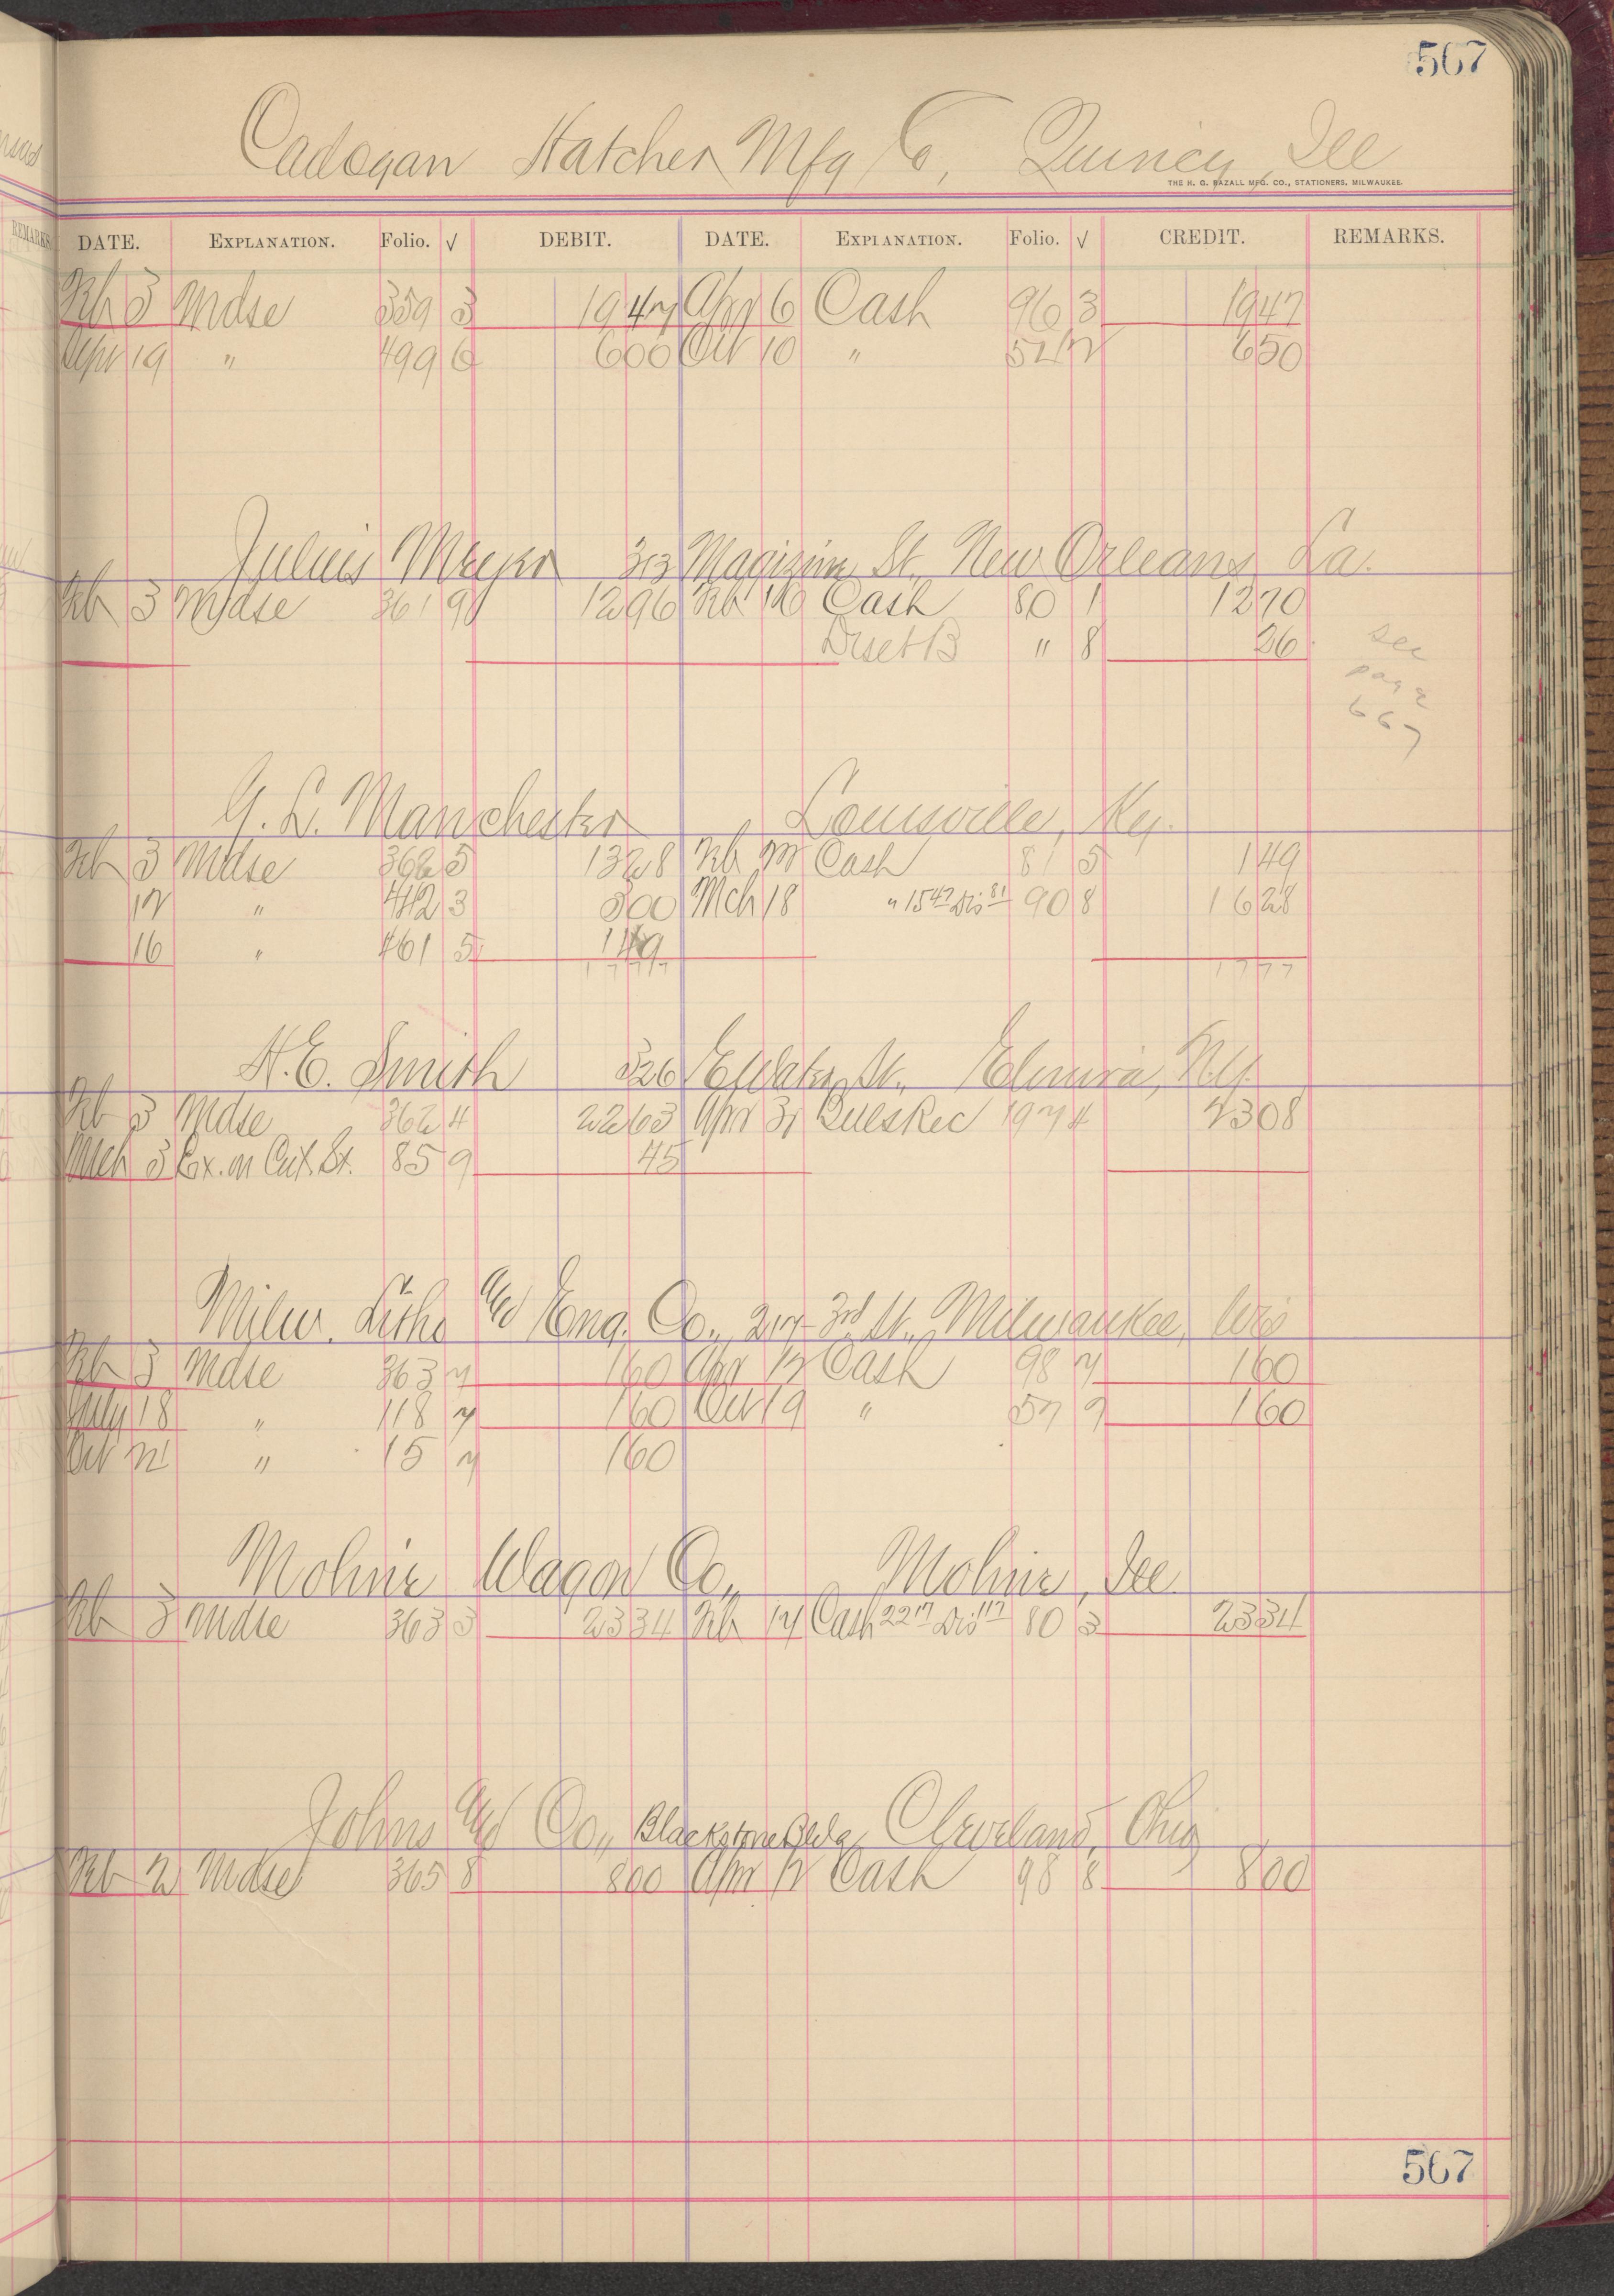 567
Cadogan Hatcher Mfg Co, Quincy, Ill
THE H. G. RAZALL MFG. CO., STATIONERS, MILWAUKEE.
DATE. EXPLANATION. Folio. √ DEBIT. DATE. EXPLANATION. Folio. √ CREDIT. REMARKS.
Feb 3 Mdse 359 3 1947 Apr 6 Cash 96 3 1947
Apr 19 " 499 6 600 Oct 10 " 650
Julius Meyer 313 Magizine St. New Orleans, La.
Feb 3 Mdse 361 9 1296 Feb 16 Cash 80 1 1270
" 8 26
see
page
667
G. L. Manchester Louisville, Ky.
Feb 3 Mdse 362 5 1328 Feb Cash 81 5 149
12 " 412 3 300 Mch 18 " 1547 Dis 81 90 8 1628
16 " 461 5 149
1777 1777
H. E. Smith 326 E Water St. Elmira, N.Y.
Feb 3 Mdse 362 4 2263 Apr Bills Rec 197 4 2308
Mch 3 Ex. on Cut. St. 85 9 45
Milw. Litho & Eng. Co., 217 3rd St., Milwaukee, Wis
Feb 3 Mdse 363 7 160 Apr 12 Cash 98 7 160
July 18 " 118 7 160 Oct 19 " 57 7 160
Oct 21 " 15 7 160
Moline Wagon Co., Moline, Ill.
Feb 3 Mdse 363 3 2334 Feb 14 Cash 2217 Dis 117 80 3 2334
Johns & Co., Blackstone Bldg, Cleveland, Ohio
Feb 2 Mdse 365 8 800 Apr 12 Cash 98 8 800
567